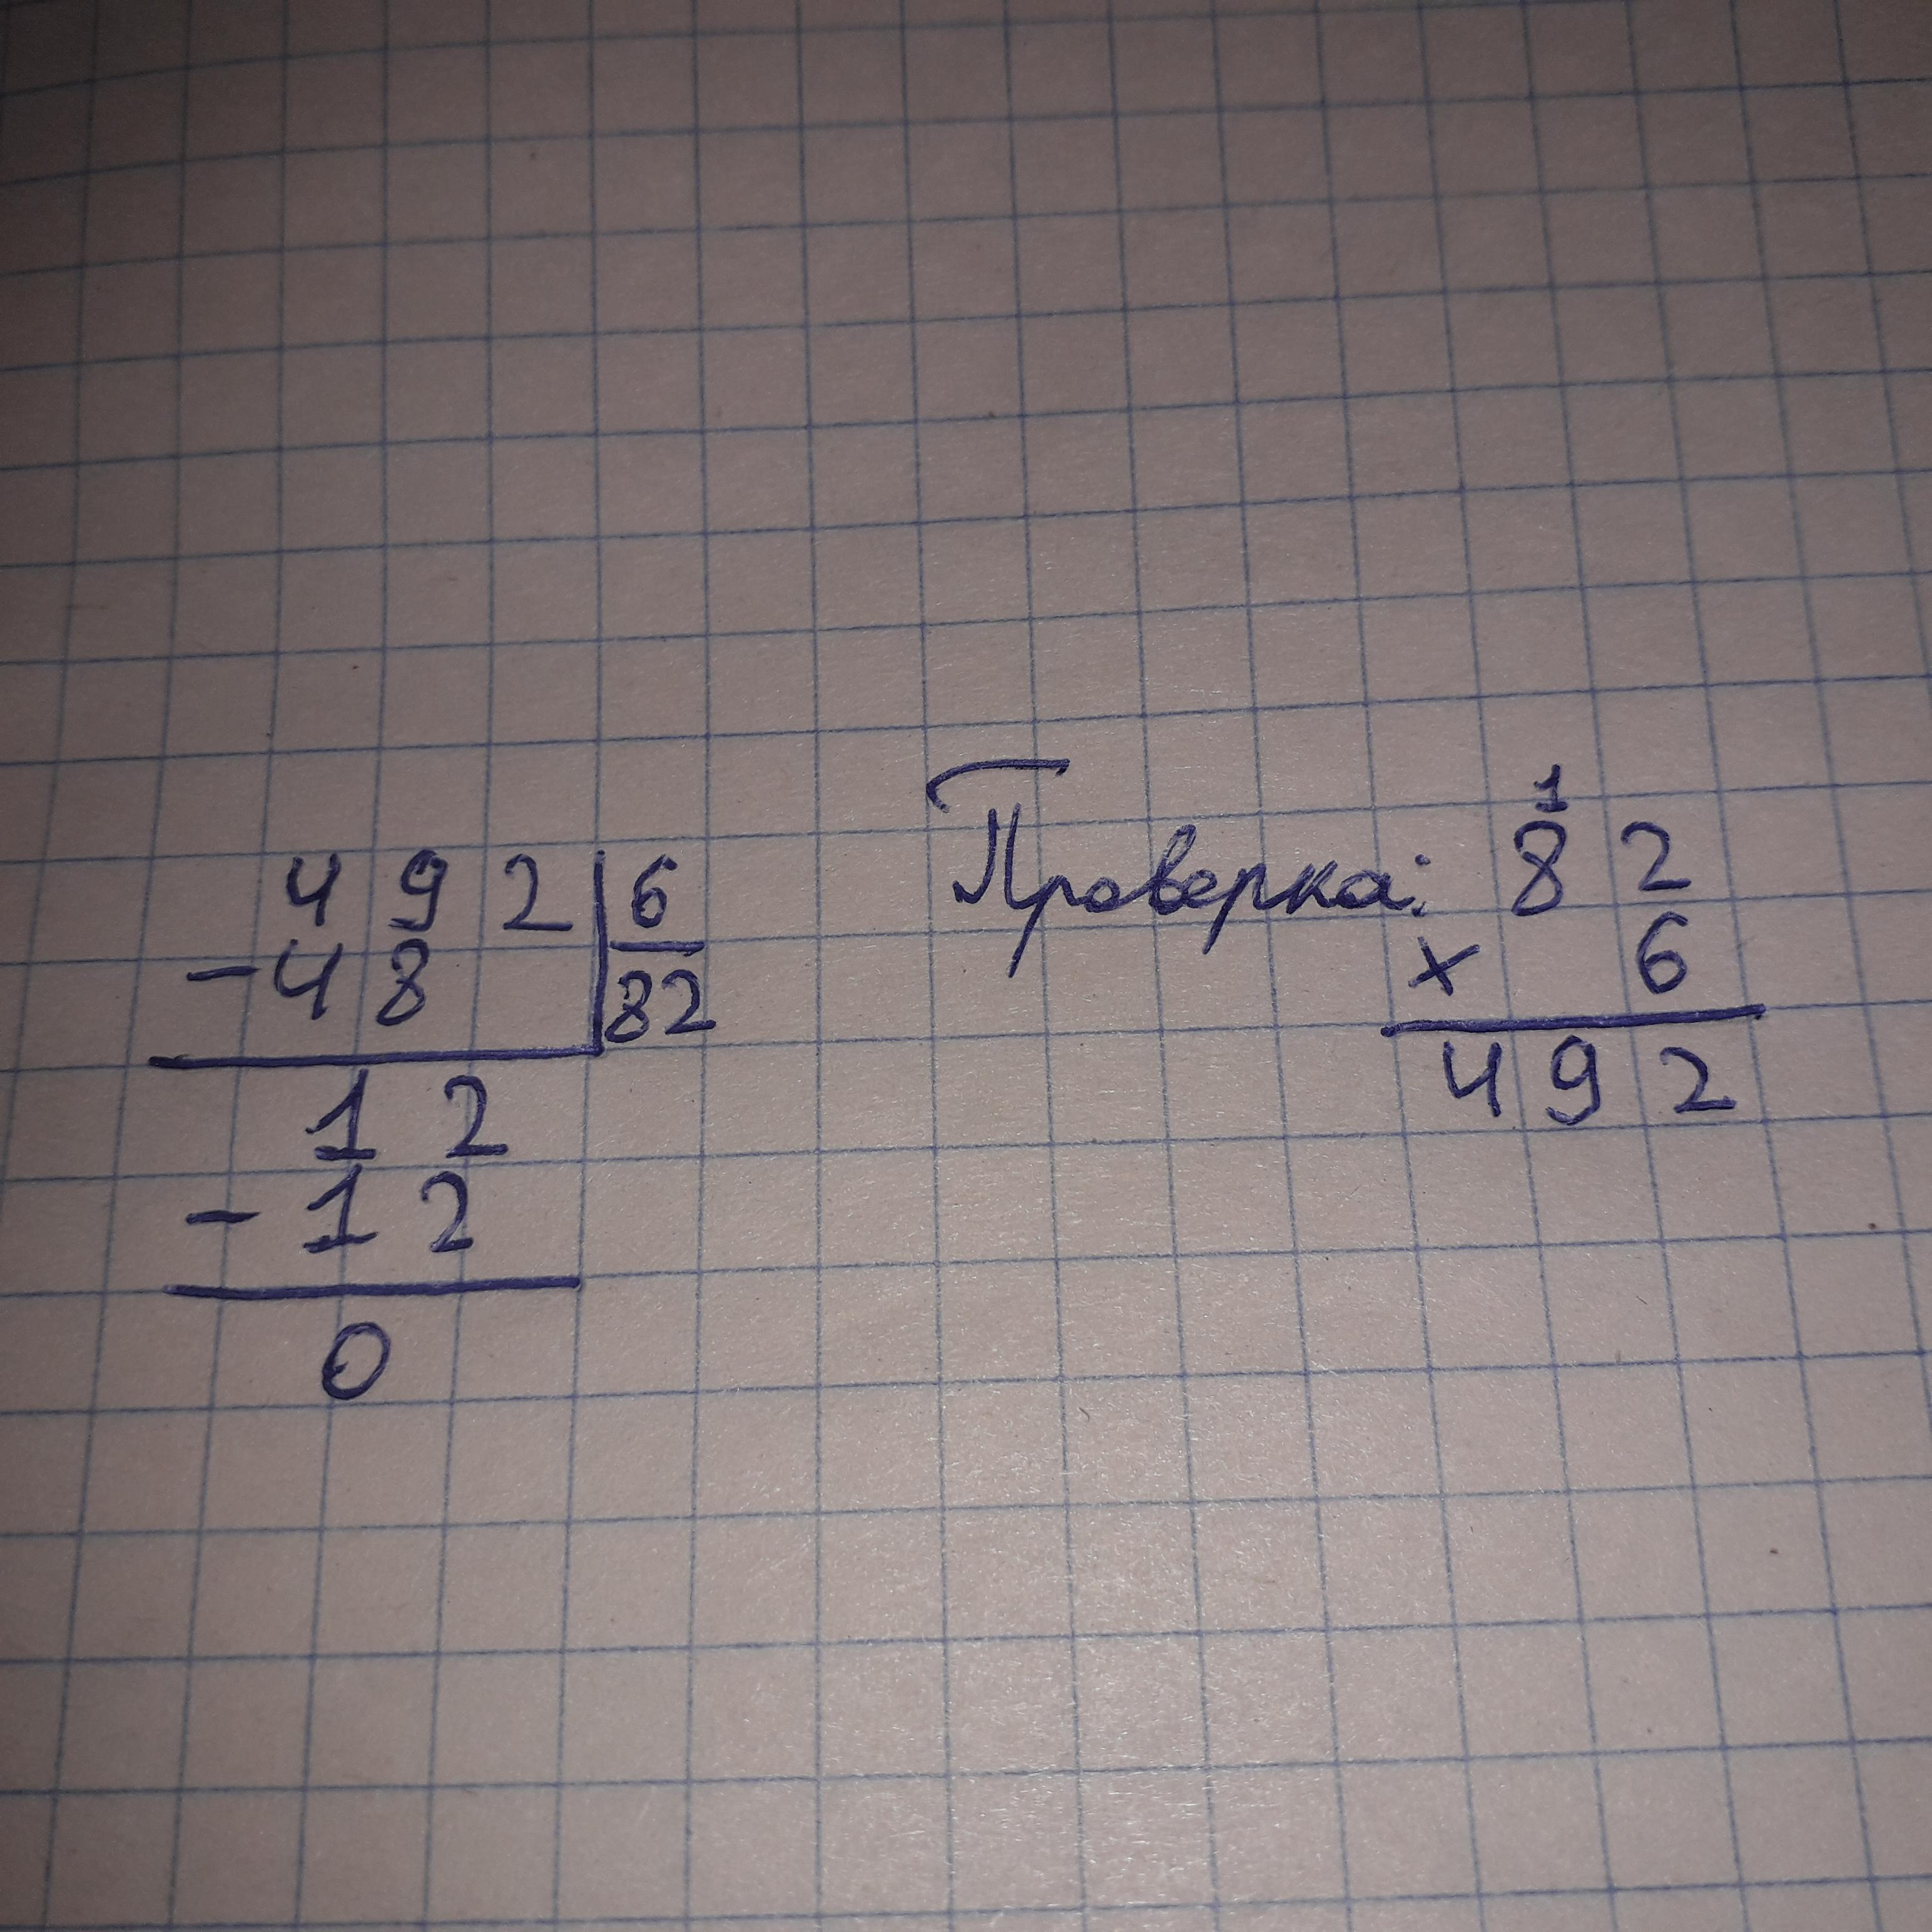 492 6
-48 82
12
-12
0
Проверка: 82
1
x 6
492